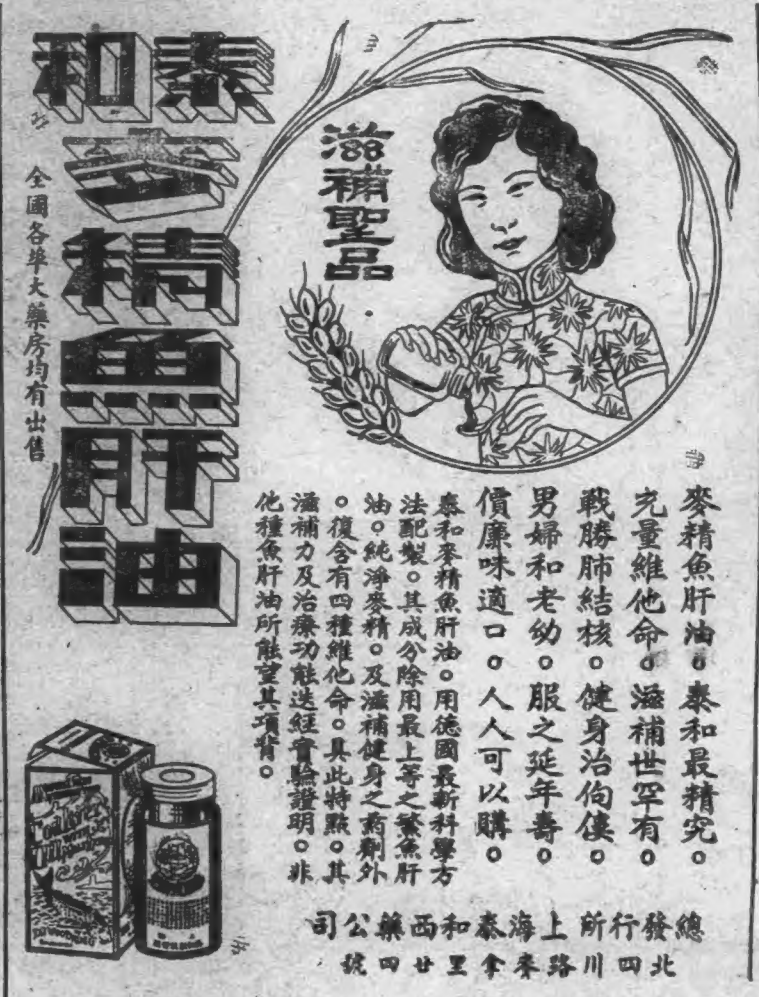 泰和
麥精魚肝油
全國各埠大藥房均有出售
滋補聖品
麥精魚肝油。泰和最精究。
充量維他命。滋補世罕有。
戰勝肺結核。健身治佝僂。
男婦和老幼。服之延年壽。
價廉味適口。人人可以購。
泰和麥精魚肝油。用德國最新科學方
法配製。其成分除用最上等之鱉魚肝
油。純淨麥精。及滋補健身之葯劑外
。復含有四種維他命。具此特點。其
滋補力及治療功能迭經實驗證明。非
他種魚肝油所能望其項背。
總發行所上海泰和西藥公司
北四川路來拿里廿四號
Cod Liver